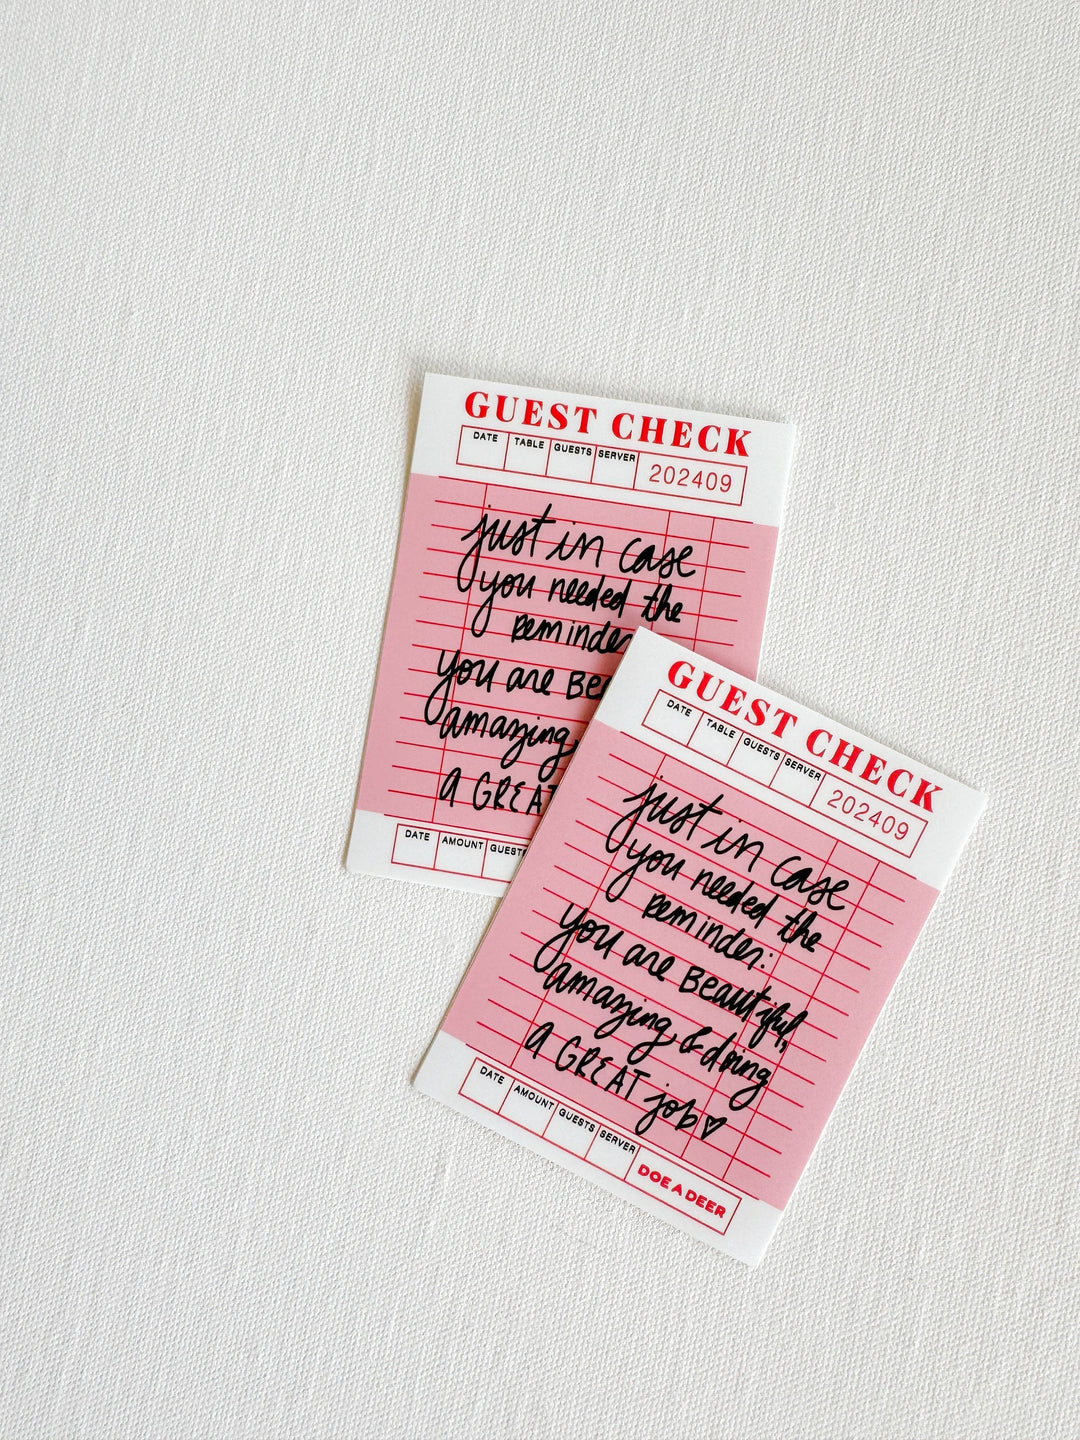 GUEST CHECK
DATE TABLE GUESTS SERVER 202409
just in case
you needed the
reminder
you are Be
amazing,
A GREAT
DATE AMOUNT GUEST
GUEST CHECK
DATE TABLE GUESTS SERVER 202409
just in case
you needed the
reminder:
you are Beautiful,
amazing, & doing
A GREAT job♡
DATE AMOUNT GUESTS SERVER DOE A DEER